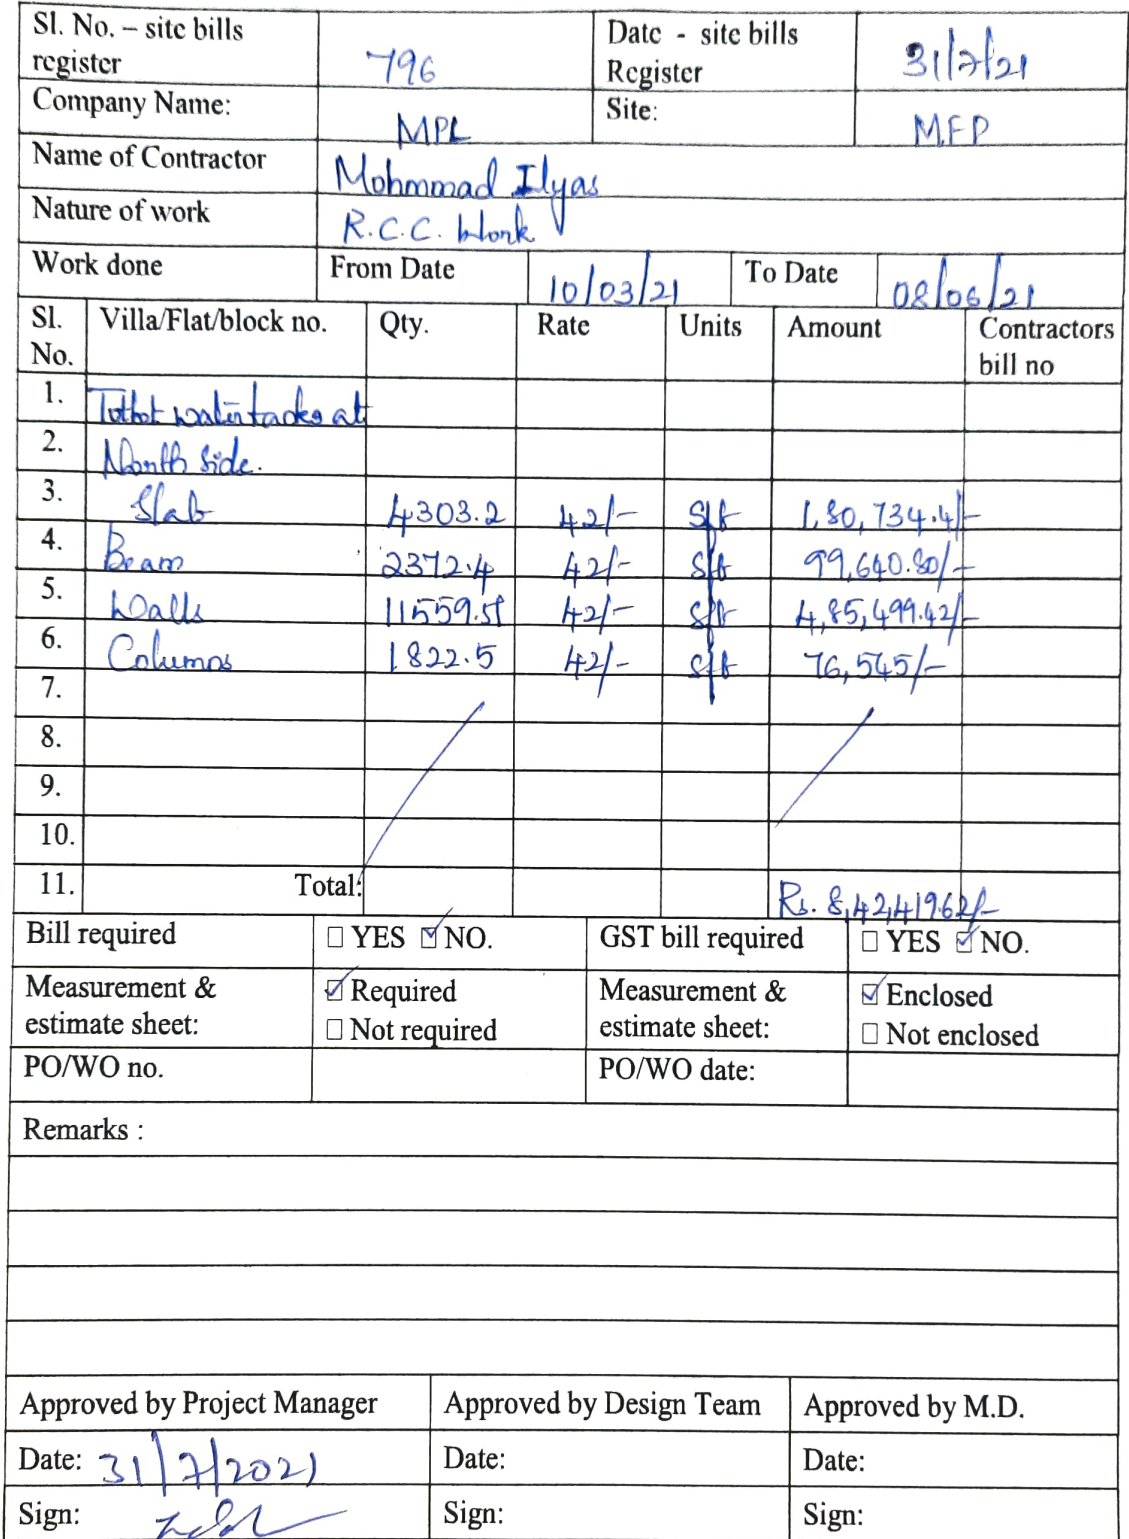 Sl. No. – site bills register 796 Date - site bills Register 31/7/21
Company Name: MPL Site: MFP
Name of Contractor Mohmmad Ilyas
Nature of work R.C.C. Work
Work done From Date 10/03/21 To Date 08/06/21
Sl. No. Villa/Flat/block no. Qty. Rate Units Amount Contractors bill no
1. water at
2. North side.
3. Slab 4303.2 42/- Sft 1,80,734.4/-
4. Beam 2372.4 42/- Sft 99,640.80/-
5. Walls 11559.51 42/- Sft 4,85,499.42/-
6. Columns 1822.5 42/- Sft 76,545/-
7.
8.
9.
10.
11. Total: Rs. 8,42,419.62/-
Bill required ☐ YES ☑ NO. GST bill required ☐ YES ☑ NO.
Measurement & estimate sheet: ☑ Required ☐ Not required Measurement & estimate sheet: ☑ Enclosed ☐ Not enclosed
PO/WO no. PO/WO date:
Remarks :
Approved by Project Manager Approved by Design Team Approved by M.D.
Date: 31/7/2021 Date: Date:
Sign: Sign: Sign: